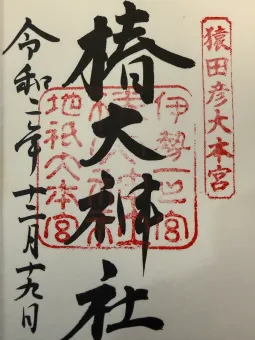 猿田彦大本宮
伊勢一之宮
椿大神社
地祇大本宮
令和二年十二月十九日